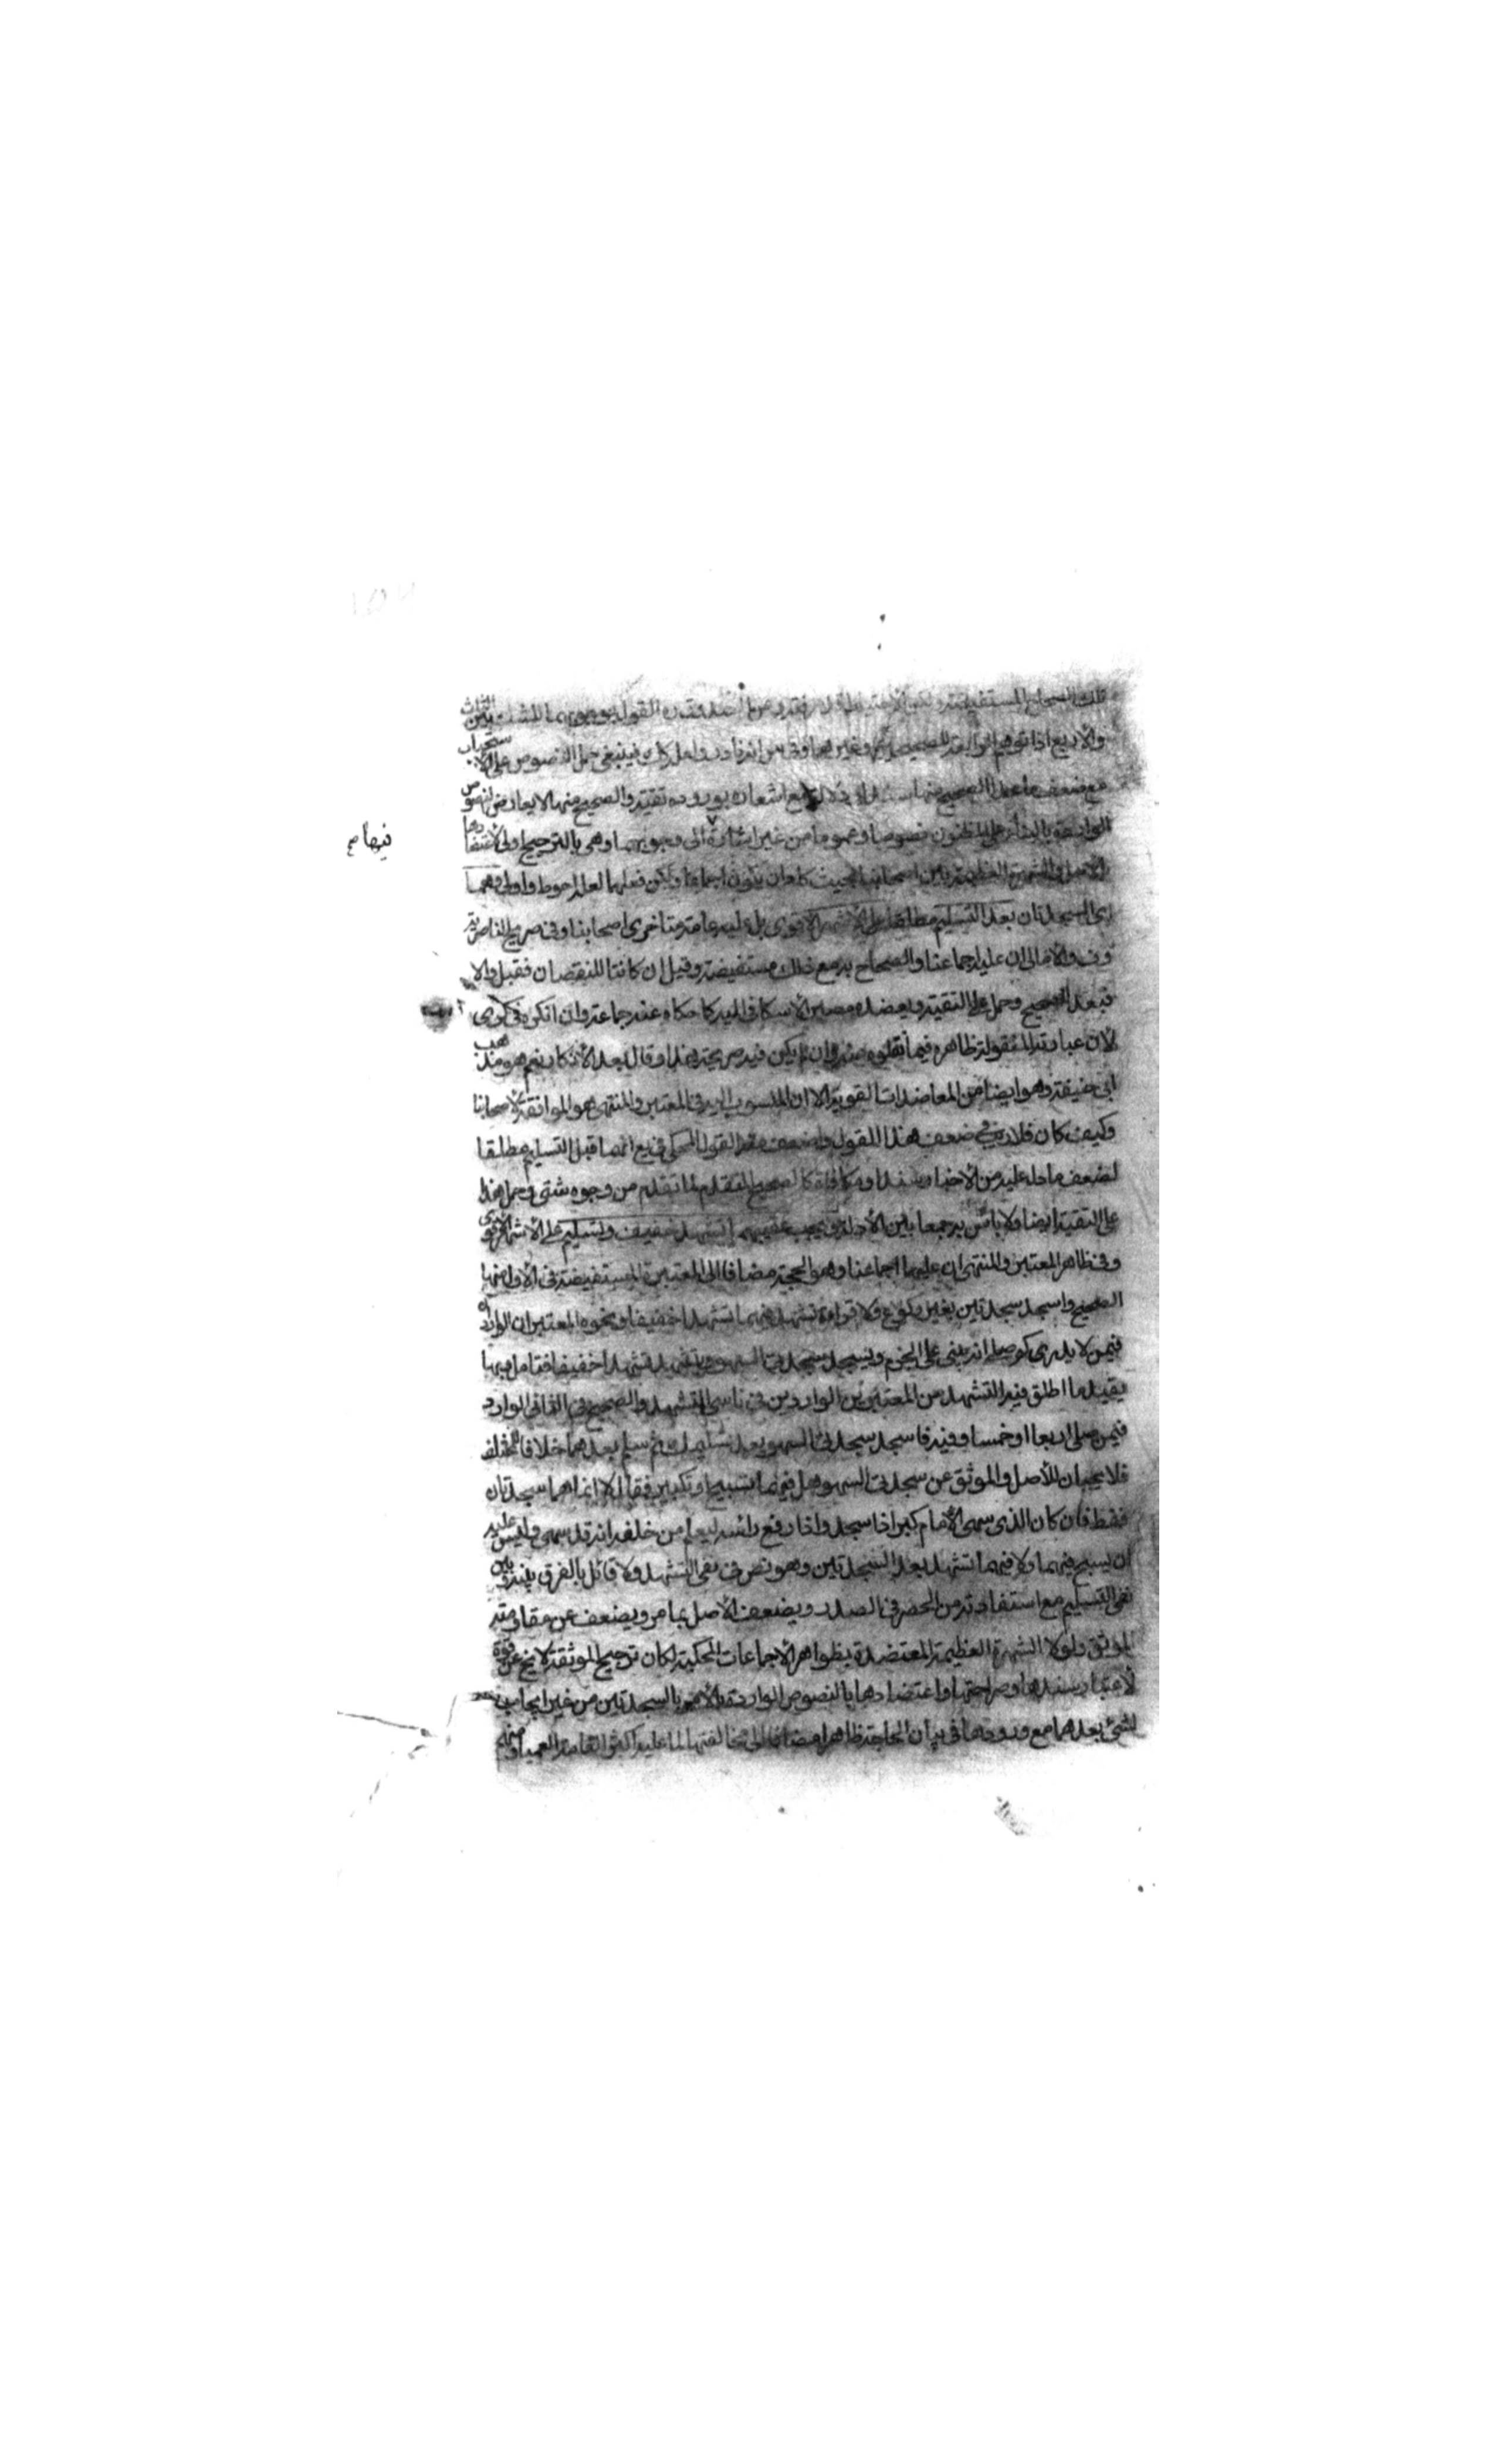 تلك الصحاح المستفيضة القول بوجوبهما للشك بين الثلاث
والاربع اذا توهم الرابعة للصحيحين وغيرهما وفى س انه نادر ولعله كك فينبغى حمل النصوص على الاستحباب
مع ضعف ما عدا الصحيح منها سندا ودلالة مع اشعاره بوروده تقية والصحيح منها لا يعارض النصوص
الواردة بالبناء على المظنون نصوصا وعموما من غير اشارة الى وجوبهما وهى بالترجيح اولى لاعتضادها
بالاصل والشهرة العظيمة بين اصحابنا بحيث كاد ان يكون اجماعا ولكن فعلهما لعله احوط واولى وهما
اى السجدتان بعد التسليم مطلقا على الاشهر الاقوى بل عليه عامة متاخرى اصحابنا وفى صريح الناصرية
وف والامالى ان عليه اجماعنا والصحاح به مع ذلك مستفيضة وقيل ان كانتا للنقصان فقبل والا
فبعد للصحيح وحمل على التقية ويعضده مصير الاسكافى اليه كما حكاه عنه جماعة وان انكره فى كرى
لان عبارته المنقولة ظاهره فيما نقلوه عنه وان لم يكن فيه صريحة وقال بعد الانكار نعم هو مذهب
ابى حنيفة وهو ايضا من المعاضدات القوية الا ان المنسوب اليه فى المعتبر والمنتهى هو الموافقة لاصحابنا
وكيف كان فلا ريب فى ضعف هذا القول واضعف منه القول المحكى فى يع انهما قبل التسليم مطلقا
لضعف ما دل عليه من الاخبار سندا ومكافاة كالصحيح المتقدم لما تقدم من وجوه شتى وحمل هذا
على التقية ايضا ولا باس به جمعا بين الادلة ويجب عقيبهما تشهد خفيف وتسليم على الاشهر الاقوى
وفى ظاهر المعتبر والمنتهى ان عليهما اجماعنا وهو الحجة مضافا الى المعتبرة المستفيضة فى الاول منها
الصحيح واسجد سجدتين بغير ركوع ولا قراءة تشهد فيهما تشهدا خفيفا ونحوه المعتبران الواردان
فيمن لا يدرى كم صلى انه يبنى على الجزم ويسجد سجدتى السهو ويتشهد تشهدا خفيفا فتامل وبهما
يقيد ما اطلق فيه التشهد من المعتبرين الواردين فى ناسى التشهد والصحيح فى الثانى الوارد
فيمن صلى اربعا او خمسا وفيه فاسجد سجدتى السهو بعد تسليمك ثم سلم بعدهما خلافا للمختلف
فلا يجبان للاصل والموثق عن سجدتى السهو هل فيهما تسبيح او تكبير فقال لا انما هما سجدتان
فقط فان كان الذى سهى الامام كبر اذا سجد واذا رفع راسه ليعلم من خلفه انه قد سهى وليس عليه
ان يسبح فيهما ولا فيهما تشهد بعد السجدتين وهو نص فى نفى التشهد ولا قائل بالفرق بينه وبين
نفى التسليم مع استفادته من الحصر فى الصدر ويضعف الاصل بما مر ويضعف عن مقاومته
الموثق ولولا الشهرة العظيمة المعتضدة بظواهر الاجماعات المحكية لكان ترجيح الموثقة لا يخ عن قوة
لاعتبار سندها وصراحتها واعتضادها بالنصوص الواردة بالامر بالسجدتين من غير ايجاب
لشئ بعدهما مع ورودها فى بيان الحاجة ظاهرا مضافا الى مخالفتها لما عليه اكثر العامة العمياء ومنه
فيها صح